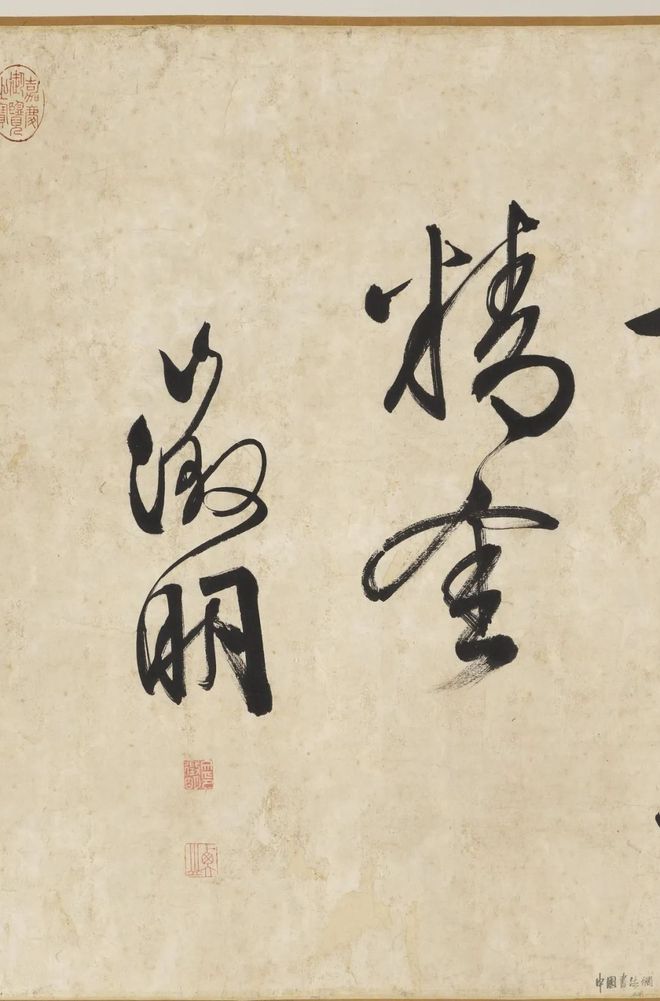 精金
徵明
嘉慶
御覽
之寶
中國書法網